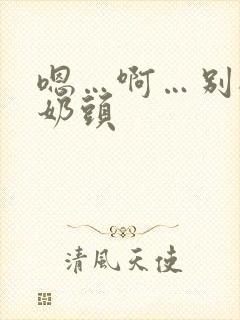 嗯…啊…别
奶頭
清風天使